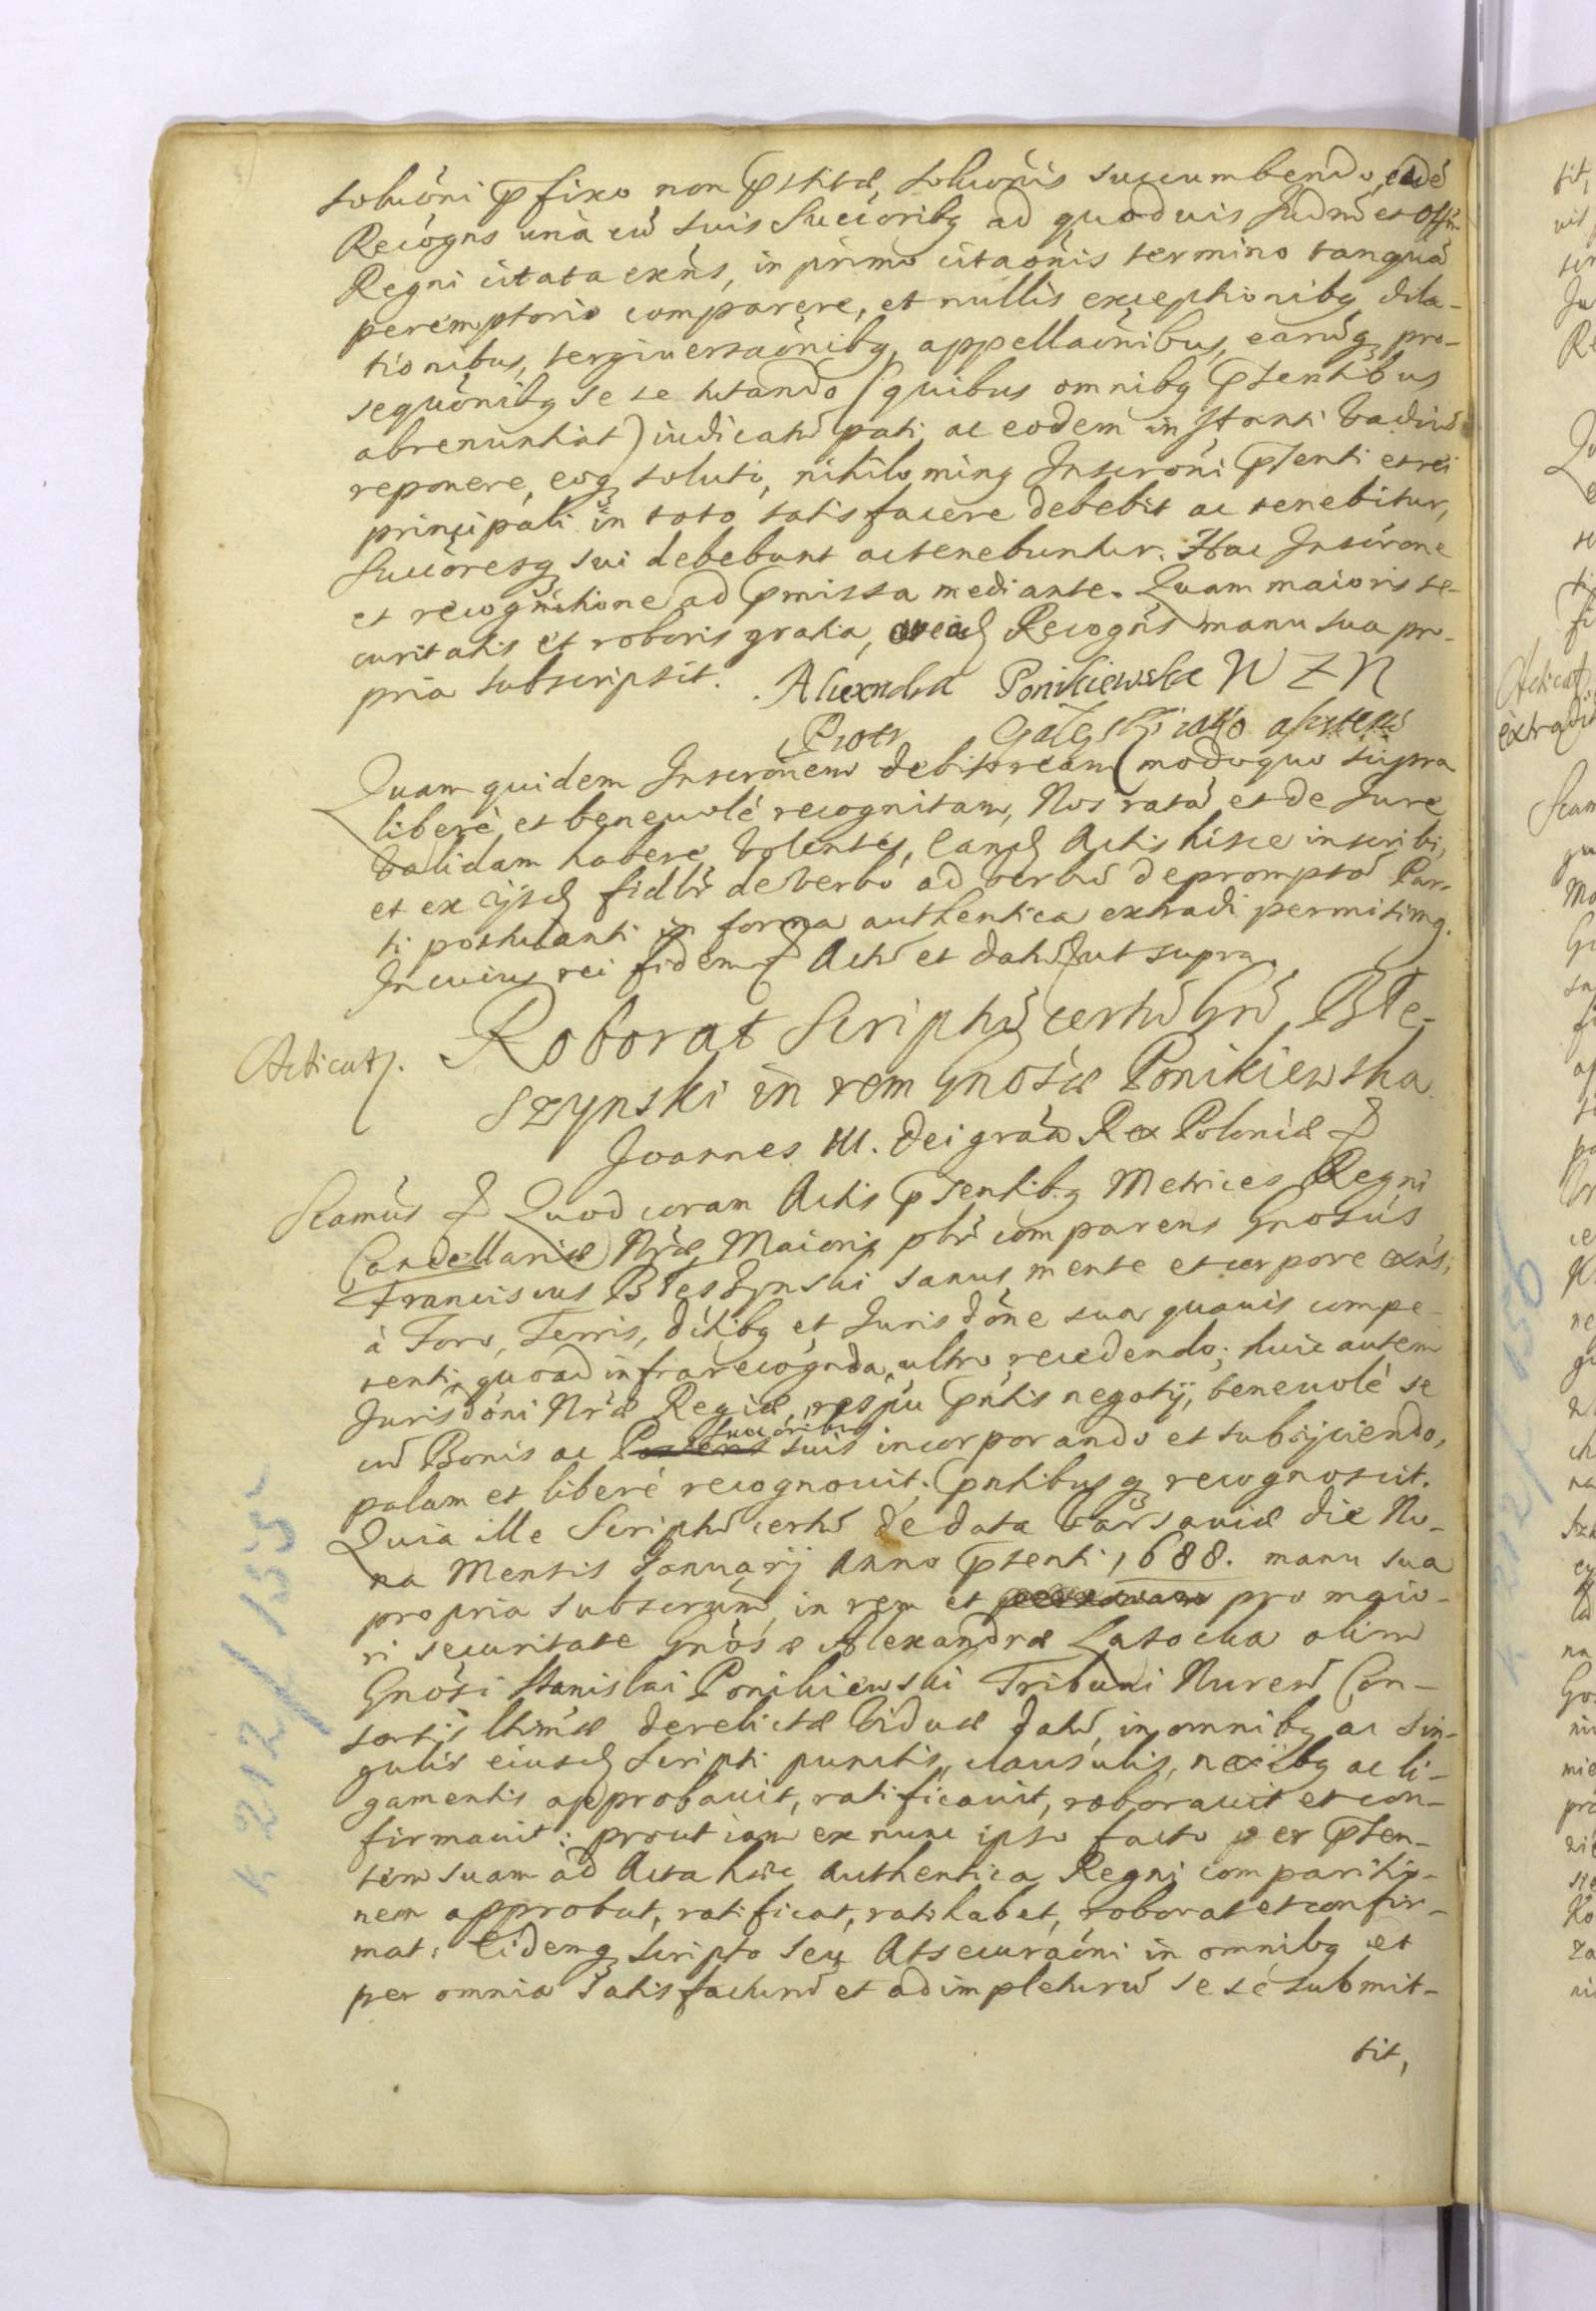 solucôni pfixo non pstitæ, solucônis succumbendo, eadé
Recôgns unà cũ suis Succorib9 ad quoduis Judm̃ et Offm
Regni citata exn̄s, in primo citaônis termino tanquã
peremptorio comparere, et nullis exceptionibq dila-
tionibus, tergiuersaônibq, appellaônibus, earũq pro-
sequônibq se se tutando (quibus omnibq pſentibus
abrenuntiat) iudicatũ pati, ac eodem in ſtanti vadiũ
reponere, eoq soluto, nihilominq Inscrôni pſenti et rei
principali in toto satisfacere debebit ac tenebitur,
Succôresq sui debebunt ac tenebuntur. Hac Inscrône
et recognitione ad pmissa mediante. Quam maioris se-
curitatis et roboris gratia, Recogn̄s manu sua pro-
pria subscripsit. Alexandra Ponikiewska W Z N
Piotr Gałęski
Quam quidem Inscrônem debitoream modo quo supra
liberè, et beneuolé recognitam, Nos ratã et de Jure
Validam habere Volentes, eand Actis hisce inscribi,
et ex ijsd fidlr̃ de verbo ad verbũ depromptã Par-
ti postulanti in forma authentica extradi permisimq.
In cuius rei fidem & Actũ et datũ ut supra.
Acticat.
Roborat Scriptũ certũ Gn̄s Błe-
szynski in rem Gnosæ Ponikiewska
Joannes III. Dei grâa Rex Poloniæ &
Scamus & Quod coram Actis pſentibq Metrices Regni
Cancellariæ Nr̄æ Maioris plr̃ comparens Gnosus
Franciscus Błeszynski sanus mente et corpore exn̄s,
à Foro, Terris, ditibq et Jurisdône sua quauis compe-
tenti, quoad infra recôgnda, ultro recedendo; huic autem
Jurisdôni Nr̄æ Regiæ, respu pn̄tis negotij, beneuolé se
cũ Bonis ac succôribq suis incorporando et subijciendo,
palam et liberé recognouit, pn̄tibusq recognoscit.
Quia ille Scriptũ certũ de data Varsauiæ die No-
na Mensis Januarij Anno pſenti 1688. manu sua
propria subscrum, in rem et pro maio-
ri securitate Gnôsæ Alexandræ Lasocka olim
Gnôsi Stanislai Ponikiewski Tribuni Nuren̄ Con-
sortis ltimæ derelictæ Viduæ datũ, in omnibq ac sin-
gulis eiusd scripti punctis, clausulis, nexibq ac li-
gamentis approbauit, ratificauit, roborauit et con-
firmauit: prout iam ex nunc ipso facto per pſen-
tem suam ad Acta hæc authentica Regni comparitio-
nem approbat, ratificat, ratihabet, roborat et confir-
mat: Eidemq scripto seu Assecuraôni in omnibq et
per omnia satisfacturũ et adimpleturũ se se submit-
tit,
K 212/155